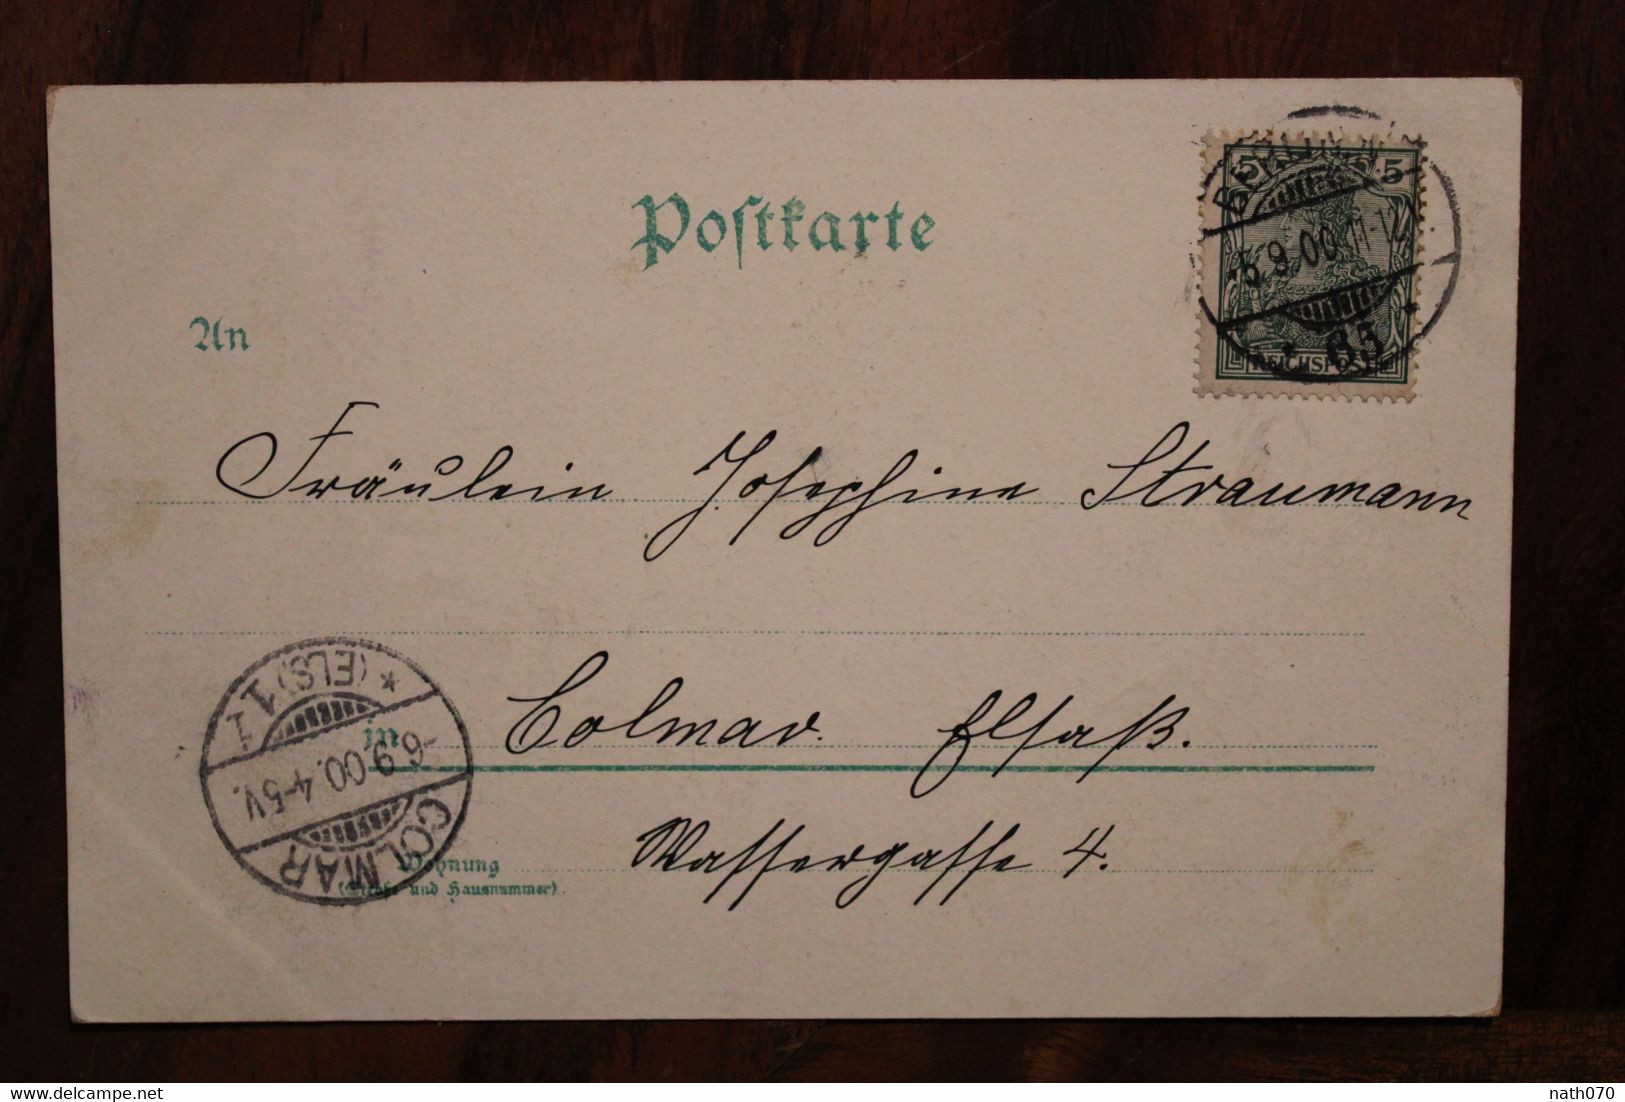 Postkarte
5 5
BERLIN
5.9.00 11-12
REICHSPOST
An
Fräulein Josephine Straumann
in Colmar. Elsaß.
COLMAR
-6.9.00. 4-5V.
* (ELS) 1 1
Wassergasse 4.
Wohnung
(Straße und Hausnummer)
nath070